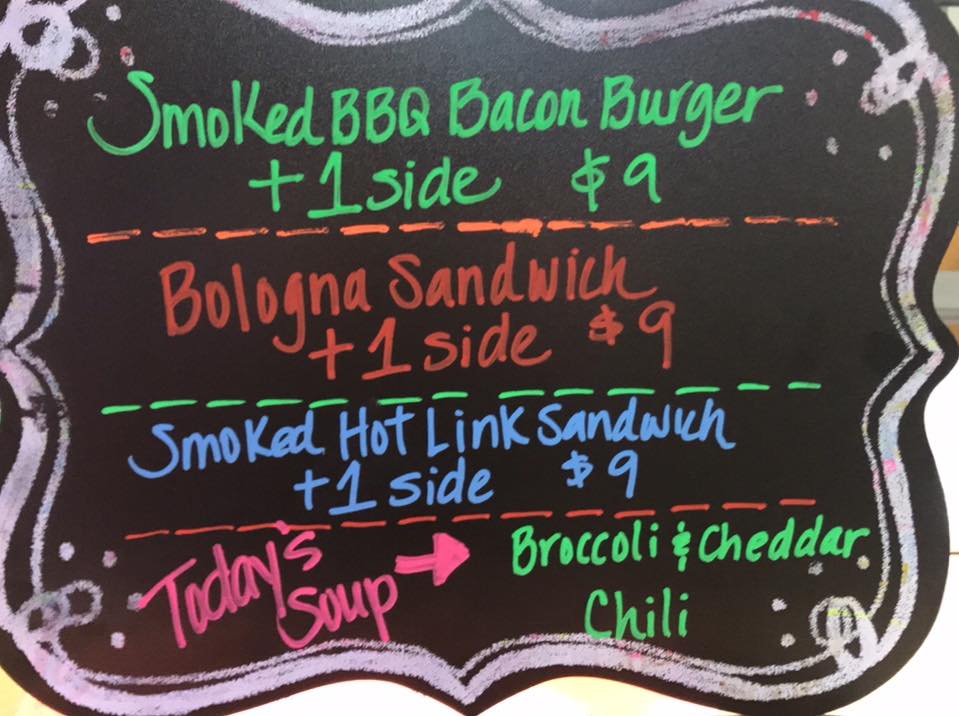 Smoked BBQ Bacon Burger
+ 1 side $9
Bologna Sandwich
+ 1 side $9
Smoked Hot Link Sandwich
+ 1 side $9
Today's Soup → Broccoli & Cheddar
Chili